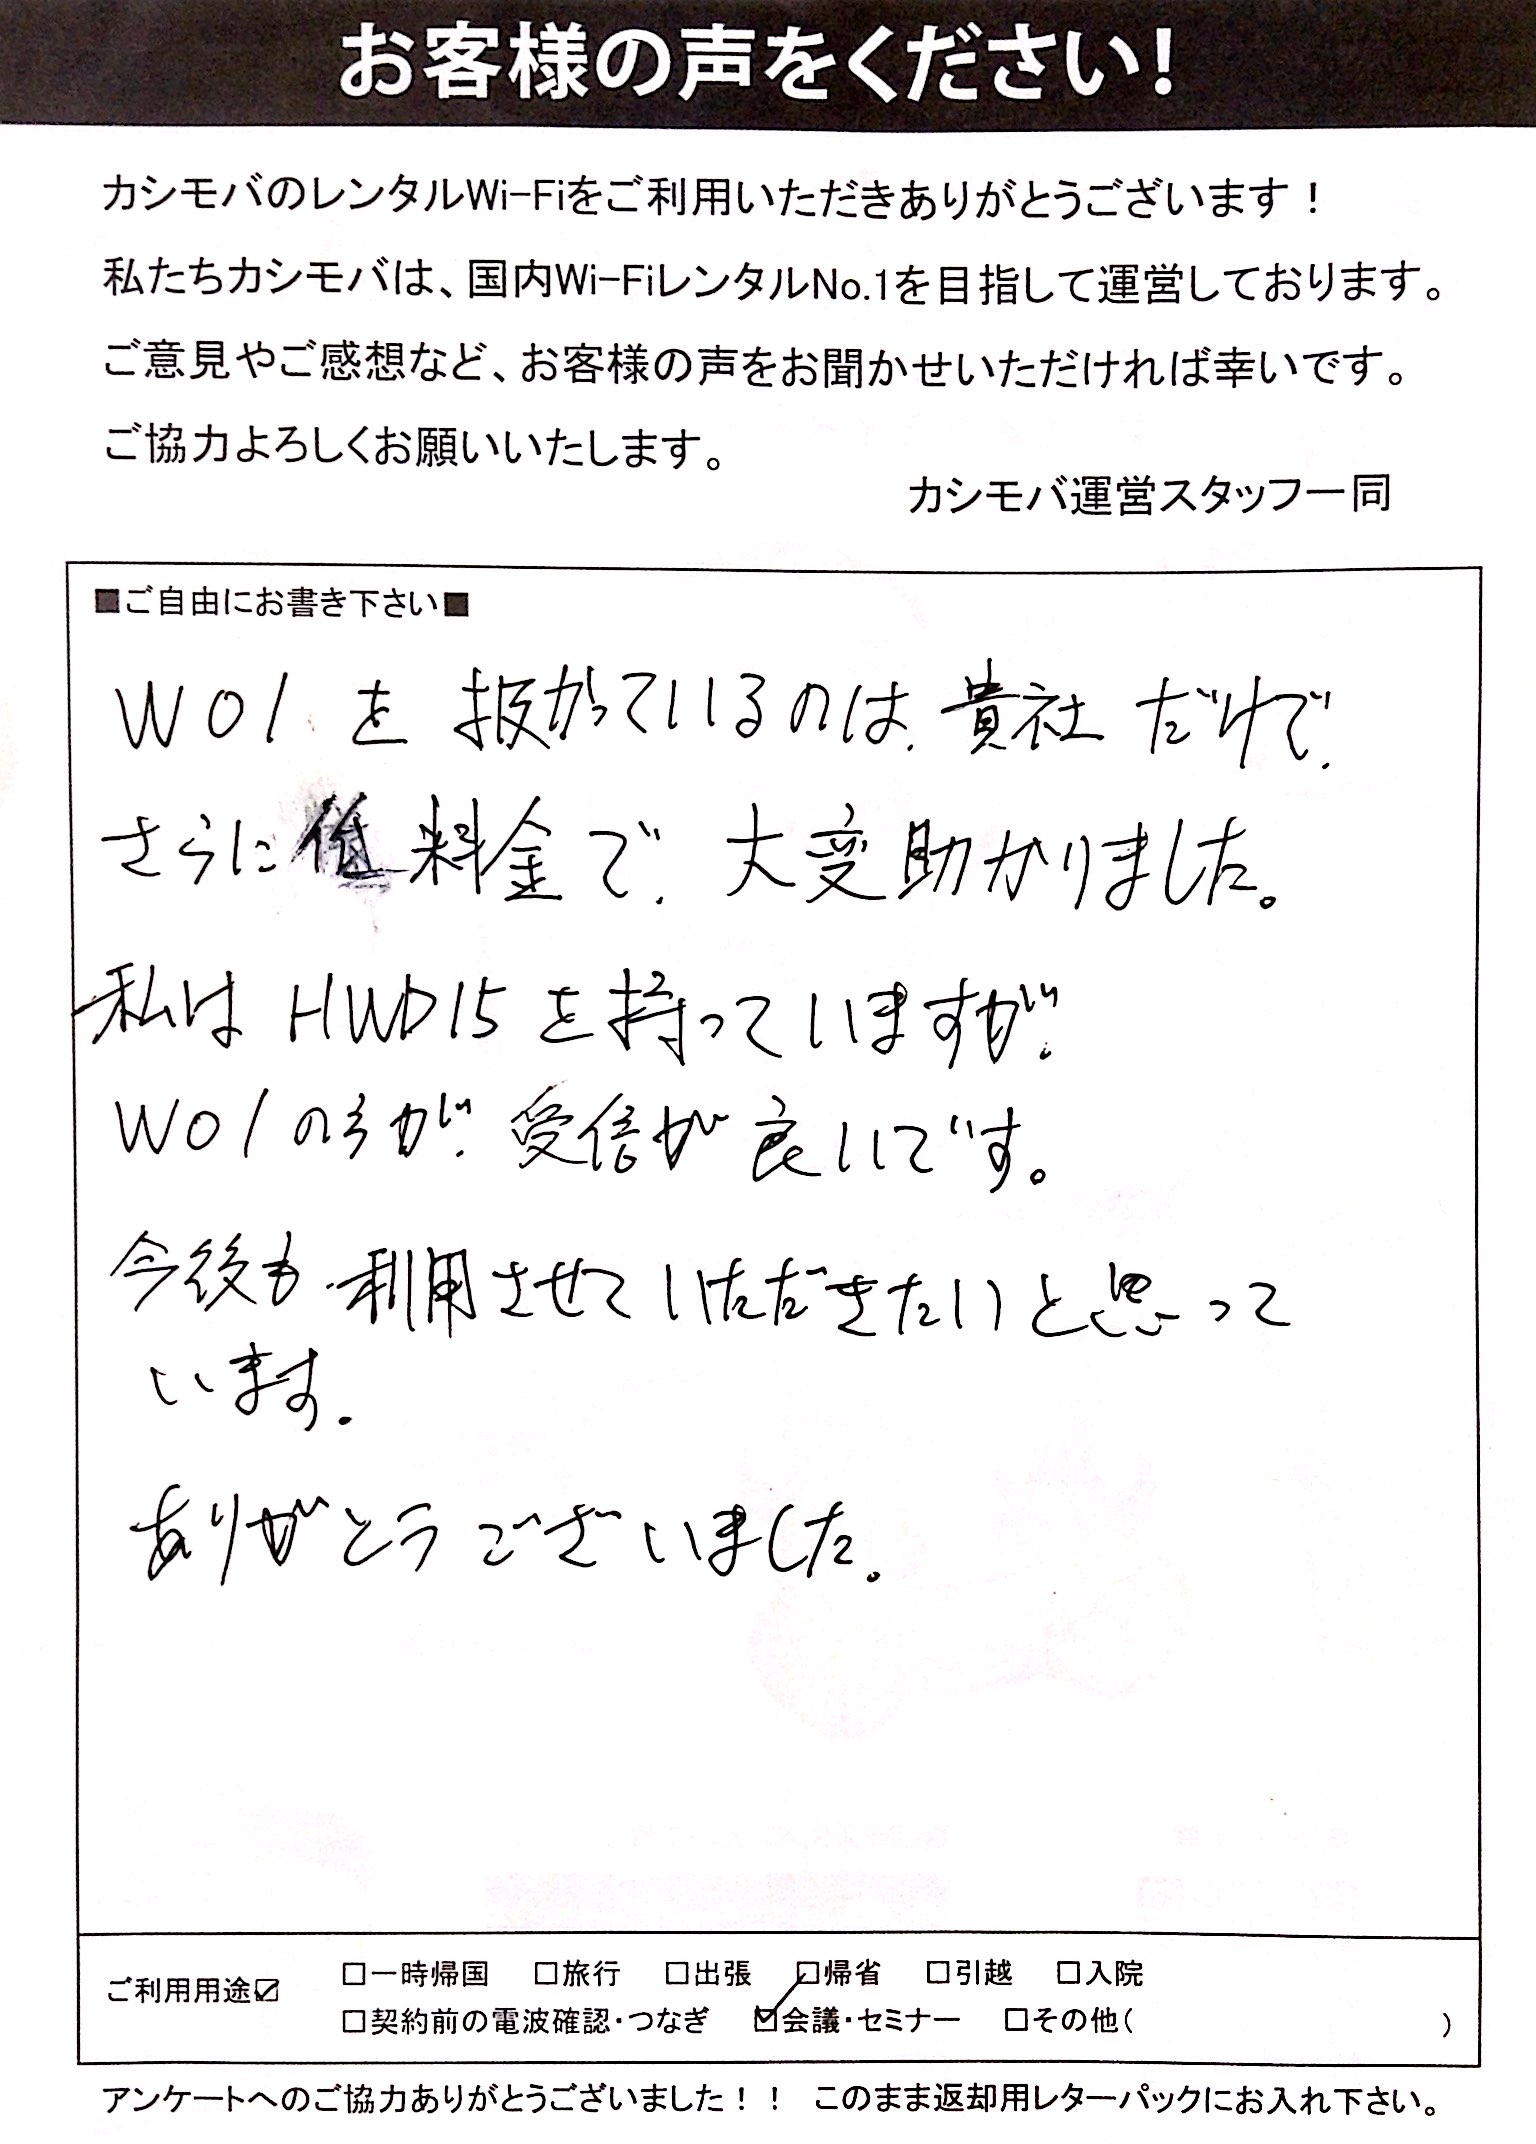 お客様の声をください!
カシモバのレンタルWi-Fiをご利用いただきありがとうございます！
私たちカシモバは、国内Wi-FiレンタルNo.1を目指して運営しております。
ご意見やご感想など、お客様の声をお聞かせいただければ幸いです。
ご協力よろしくお願いいたします。
カシモバ運営スタッフ一同
■ご自由にお書き下さい■
W01 を 扱かっているのは、貴社 だけで、
さらに 低 料金で、大変助かりました。
私は HWD15 を持っていますが、
W01の方が、受信が良いです。
今後も 利用させていただきたいと思って
います.
ありがとうございました.
ご利用用途☑ □一時帰国 □旅行 □出張 □帰省 □引越 □入院
□契約前の電波確認・つなぎ ☑会議・セミナー □その他( )
アンケートへのご協力ありがとうございました！！ このまま返却用レターパックにお入れ下さい。